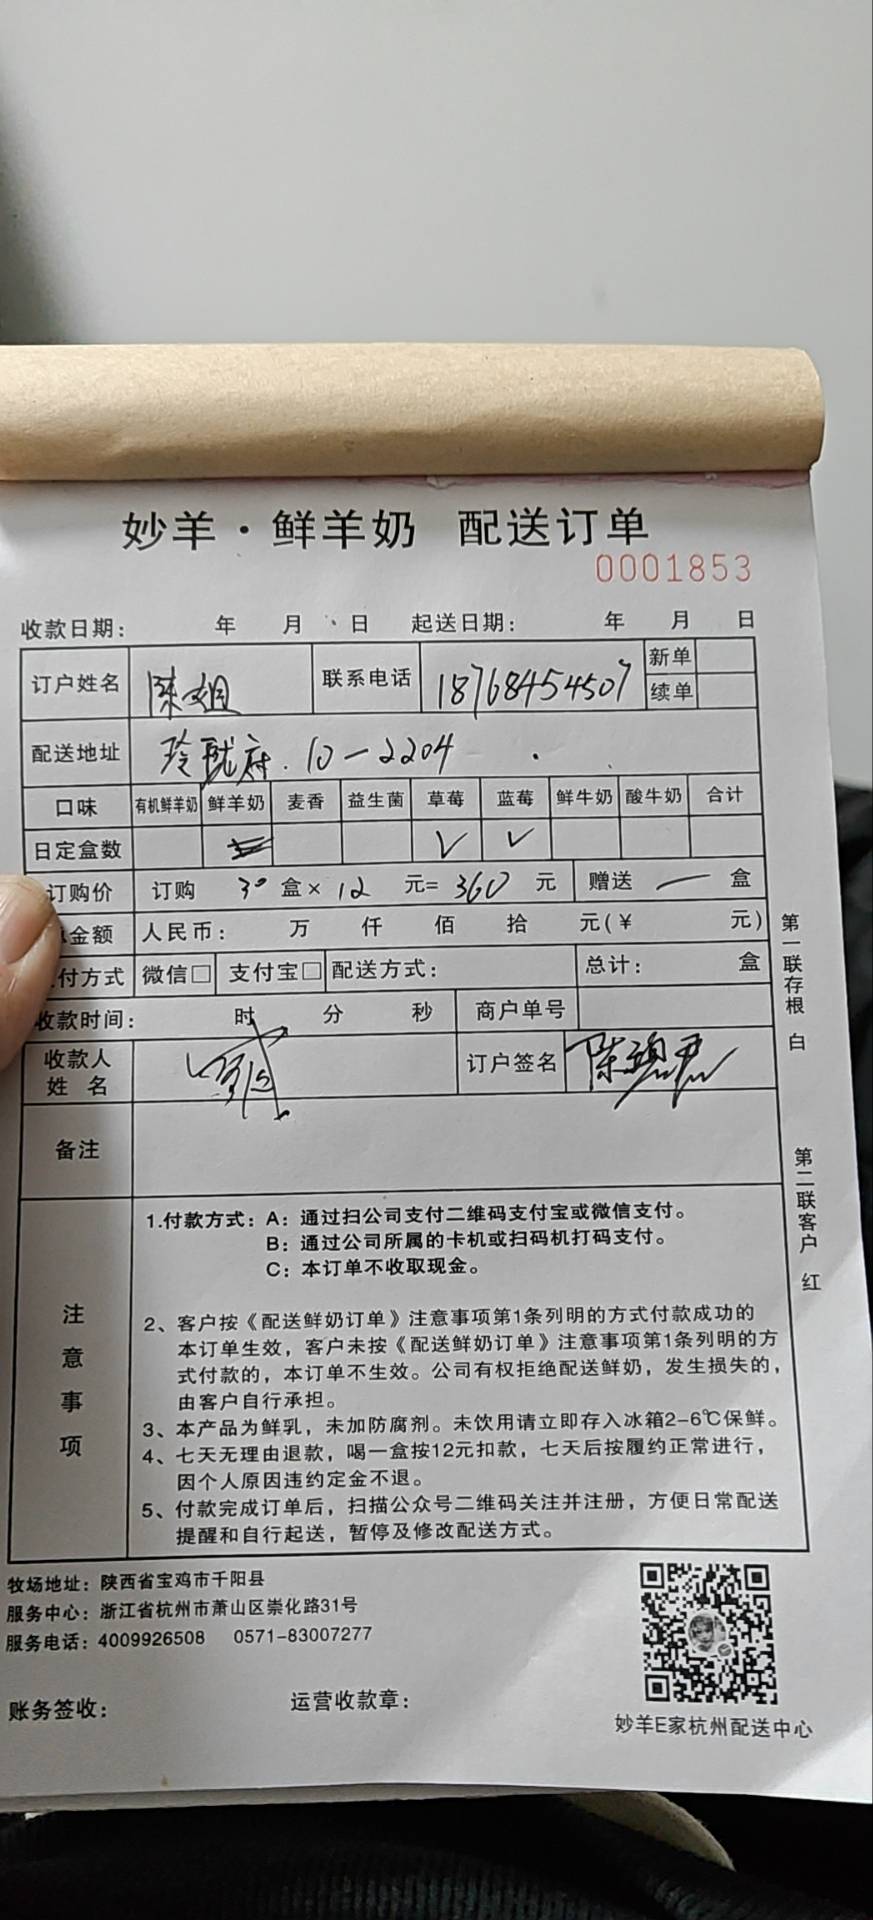 妙羊·鲜羊奶 配送订单
0001853
收款日期： 年 月 日 起送日期： 年 月 日
订户姓名 陈姐 联系电话 18768454507 新单
续单
配送地址 玲珑府.10-2204
口味 有机鲜羊奶 鲜羊奶 麦香 益生菌 草莓 蓝莓 鲜牛奶 酸牛奶 合计
日定盒数 √ √
订购价 订购 30 盒× 12 元= 360 元 赠送 一 盒
金额 人民币： 万 仟 佰 拾 元(¥ 元)
付方式 微信□ 支付宝□ 配送方式： 总计： 盒
收款时间： 时 分 秒 商户单号
收款人
姓 名
订户签名
备注
注意事项
1.付款方式：A：通过扫公司支付二维码支付宝或微信支付。
B：通过公司所属的卡机或扫码机打码支付。
C：本订单不收取现金。
2、客户按《配送鲜奶订单》注意事项第1条列明的方式付款成功的
本订单生效，客户未按《配送鲜奶订单》注意事项第1条列明的方
式付款的，本订单不生效。公司有权拒绝配送鲜奶，发生损失的，
由客户自行承担。
3、本产品为鲜乳，未加防腐剂。未饮用请立即存入冰箱2-6℃保鲜。
4、七天无理由退款，喝一盒按12元扣款，七天后按履约正常进行，
因个人原因违约定金不退。
5、付款完成订单后，扫描公众号二维码关注并注册，方便日常配送
提醒和自行起送，暂停及修改配送方式。
第一联存根 白
第二联客户 红
牧场地址：陕西省宝鸡市千阳县
服务中心：浙江省杭州市萧山区崇化路31号
服务电话：4009926508 0571-83007277
账务签收： 运营收款章：
妙羊E家杭州配送中心